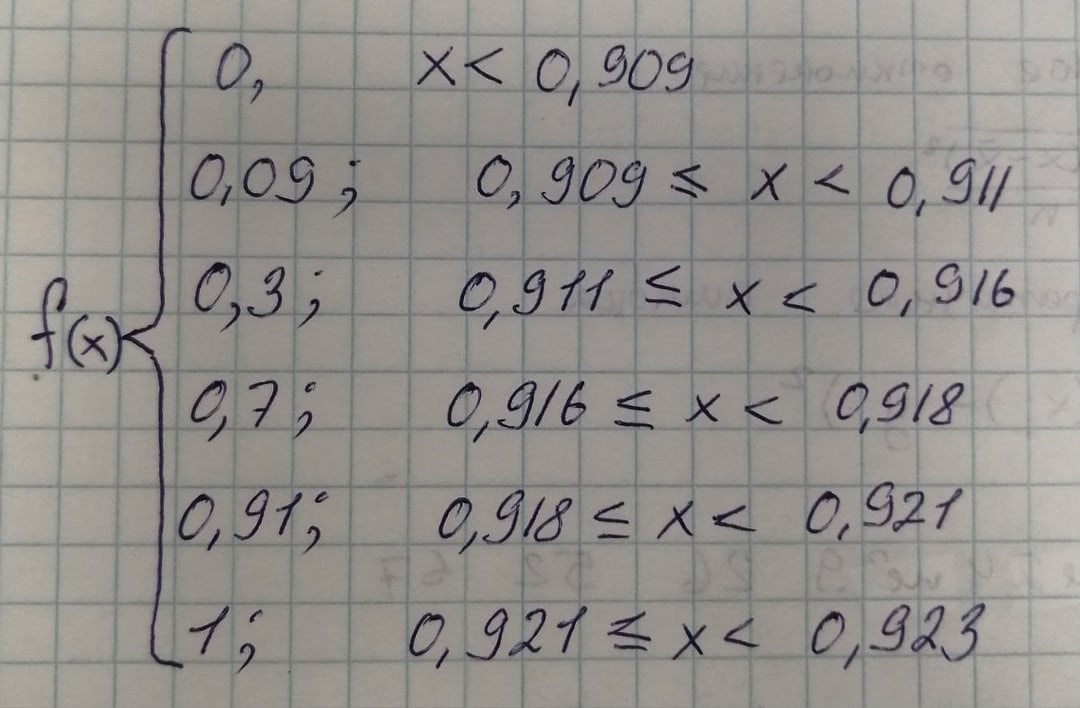 0, x < 0,909
0,09; 0,909 ≤ x < 0,911
0,3; 0,911 ≤ x < 0,916
f(x)
0,7; 0,916 ≤ x < 0,918
0,91; 0,918 ≤ x < 0,921
1; 0,921 ≤ x < 0,923